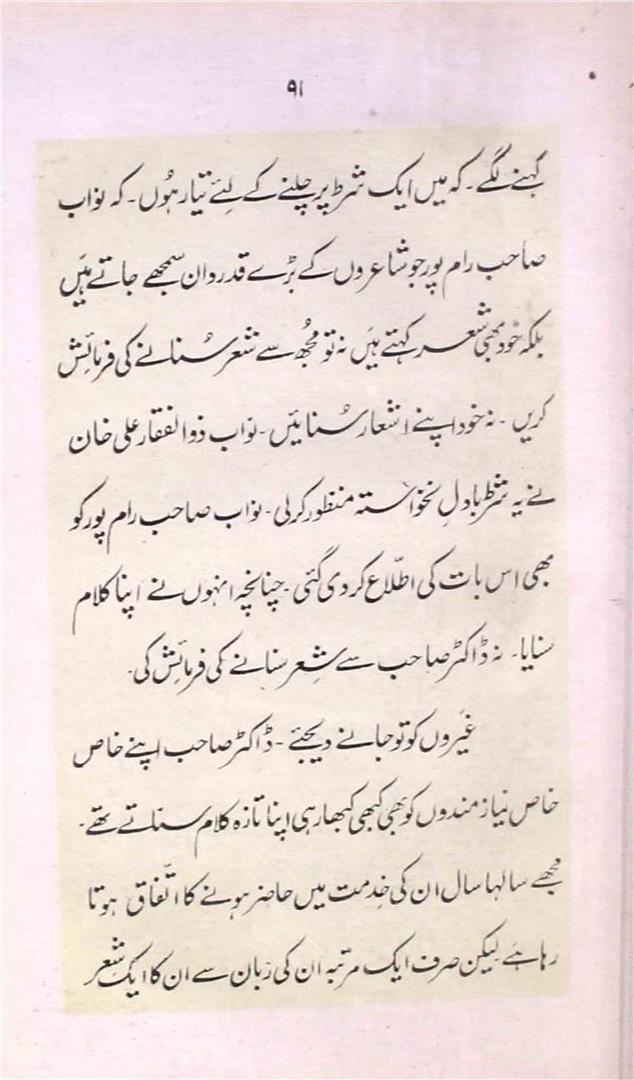 ۹۱
کہنے لگے ۔ کہ میں ایک شرط پر چلنے کے لئے تیار ہُوں ۔ کہ نواب
صاحب رام پور جو شاعروں کے بڑے قدردان سمجھے جاتے ہیَں
بلکہ خود بھی شعر کہتے ہیَں نہ تو مُجھ سے شعر سُنانے کی فرمائش
کریں ۔ نہ خود اپنے اشعار سُنائیں ۔ نواب ذوالفقار علی خان
نے یہ شرط بادلِ نخواستہ منظور کرلی ۔ نواب صاحب رام پور کو
بھی اس بات کی اطلّاع کر دی گئی ۔ چنانچہ انہوں نے اپنا کلام
سنایا ۔ نہ ڈاکٹر صاحب سے شِعر سنانے کی فرمائش کی ۔
غیَروں کو تو جانے دیجئے ۔ ڈاکٹر صاحب اپنے خاص
خاص نیاز مندوں کو بھی کبھی کبھار ہی اپنا تازہ کلام سناتے تھے ۔
مجھے سالہا سال ان کی خِدمت میں حاضر ہونے کا اتّفاق ہوتا
رہا ہَے لیکن صرف ایک مرتبہ ان کی زبان سے ان کا ایک شِعر